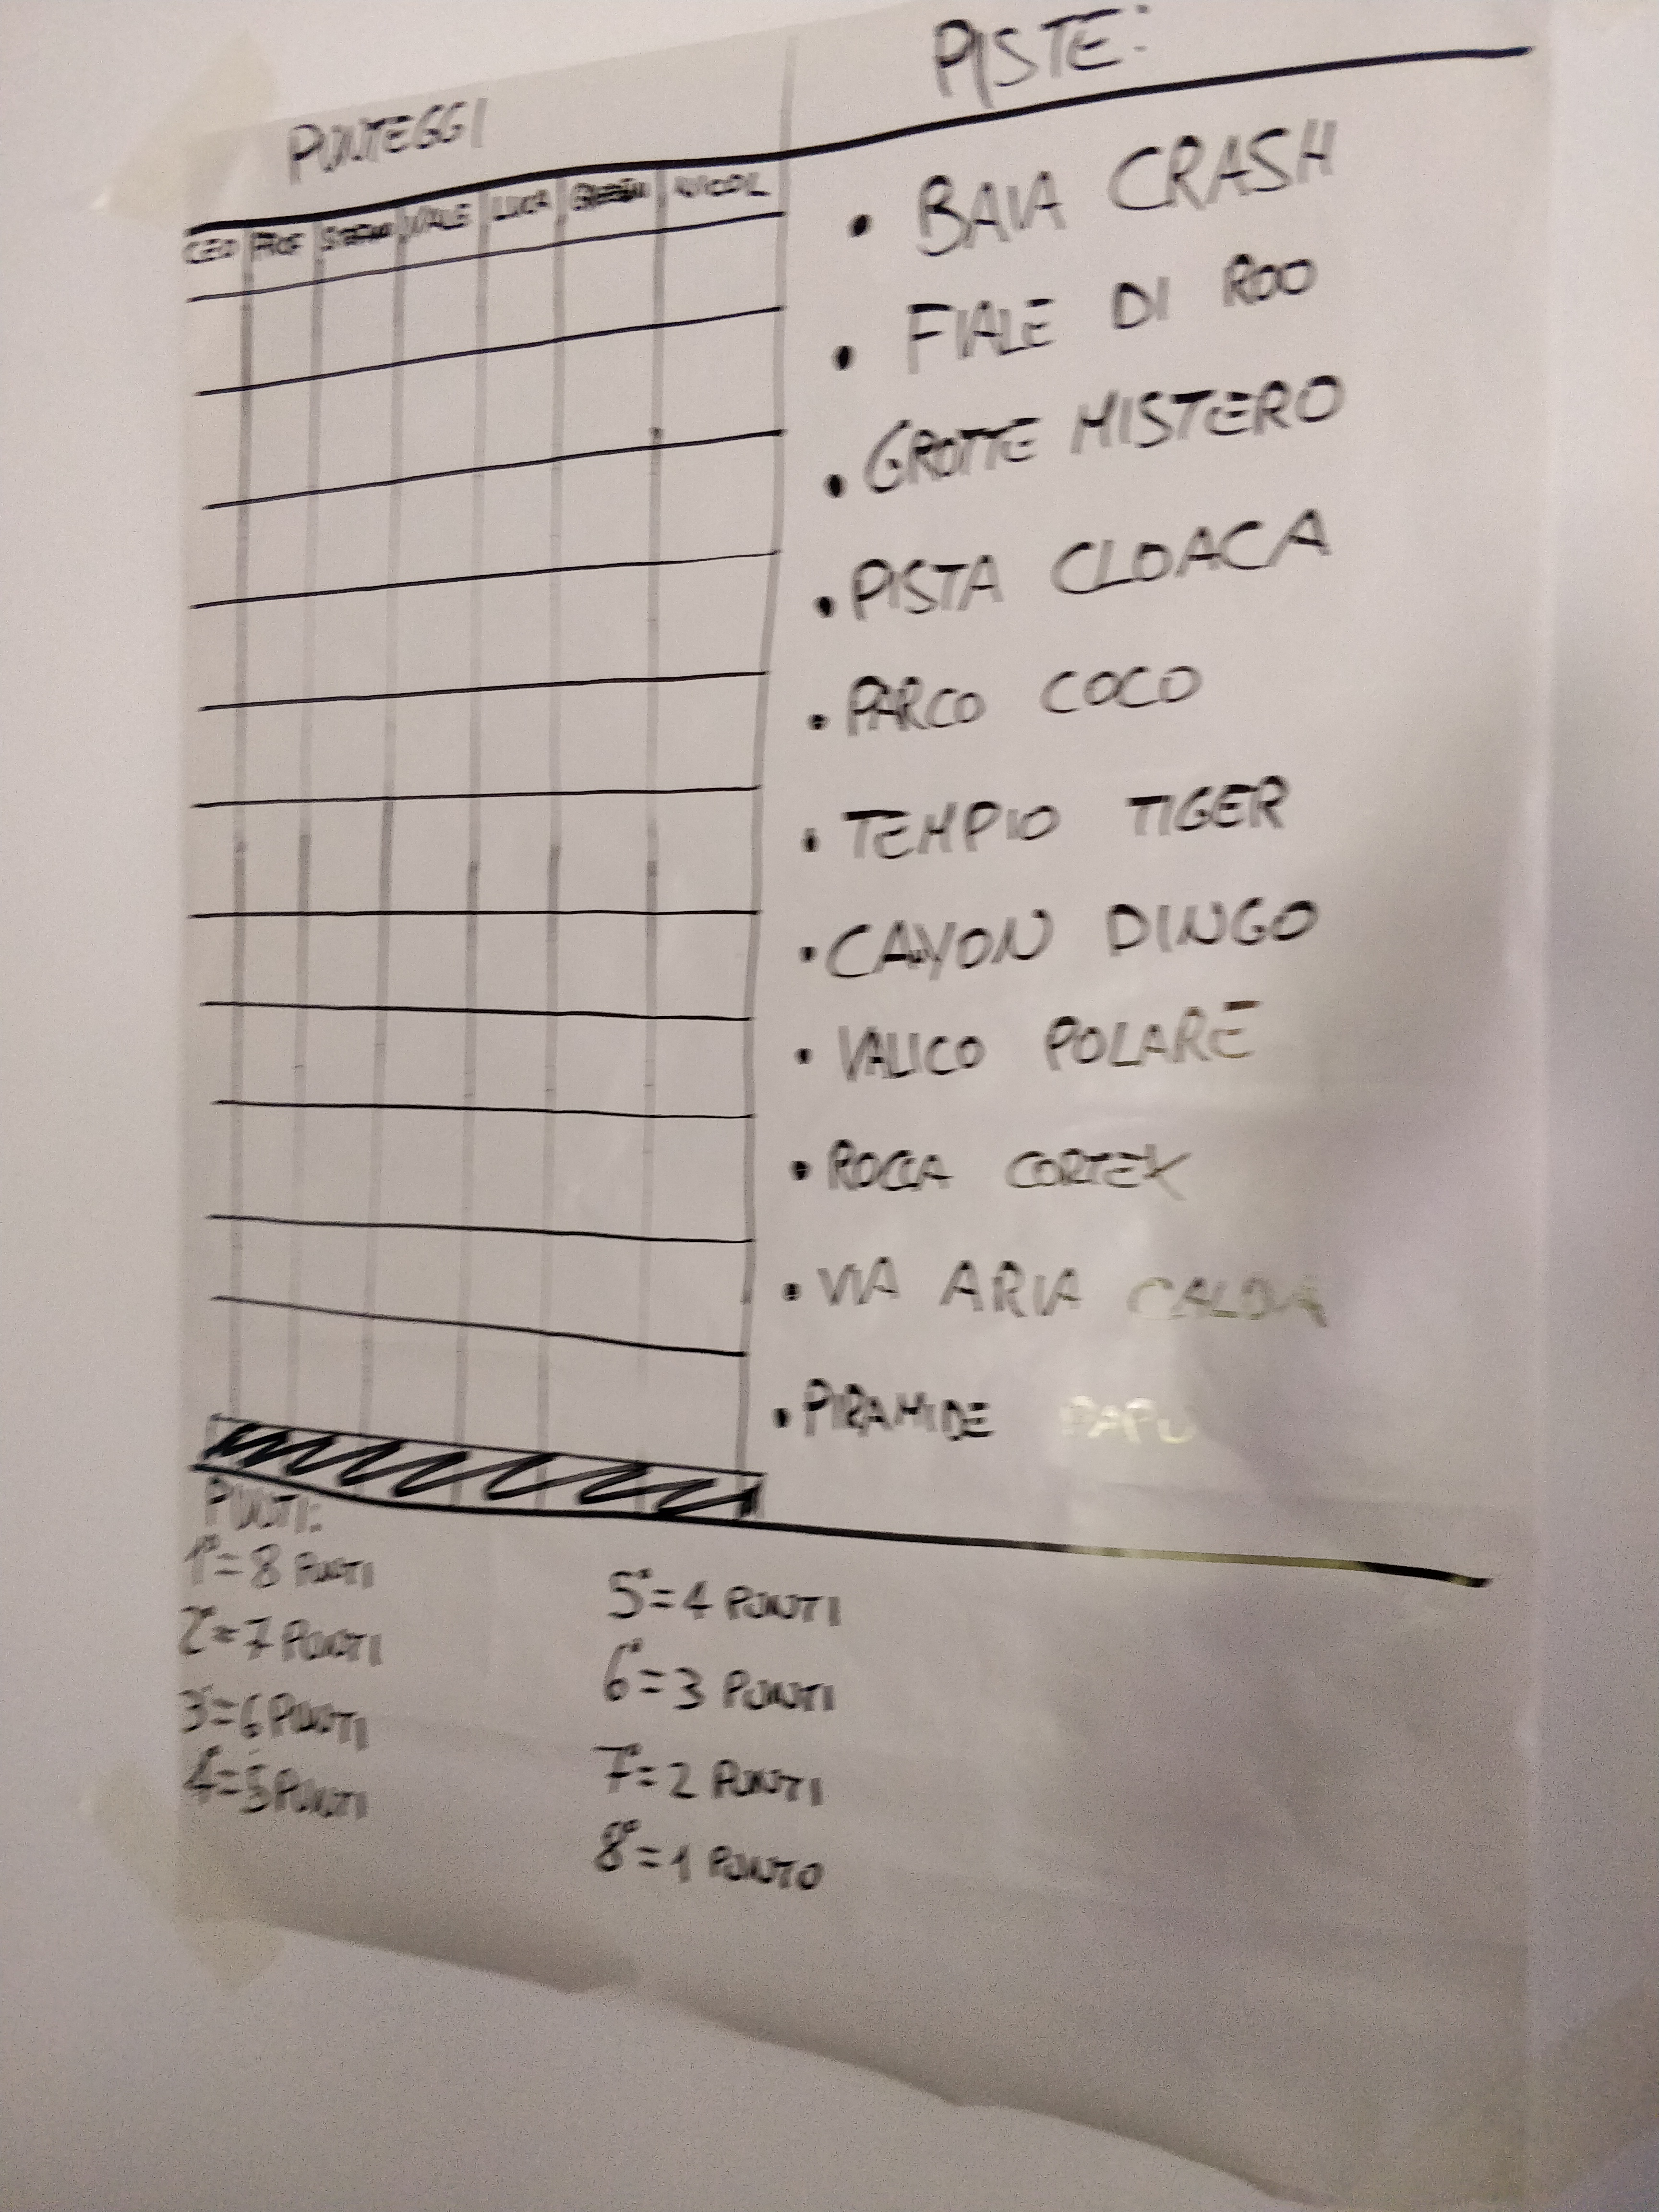 PUNTEGGI
PISTE:
LEO PROF STEFAN VALE LUCA NICOL
• BAIA CRASH
• FIALE DI ROO
• GROTTE MISTERO
• PISTA CLOACA
• PARCO COCO
• TEMPIO TIGER
• CANYON DINGO
• VALICO POLARE
• ROCCA CORTEX
• VIA ARIA CALDA
• PIRAMIDE PAPU
PUNTI:
1°=8 PUNTI
2°=7 PUNTI
3°=6 PUNTI
4°=5 PUNTI
5°=4 PUNTI
6°=3 PUNTI
7°=2 PUNTI
8°=1 PUNTO